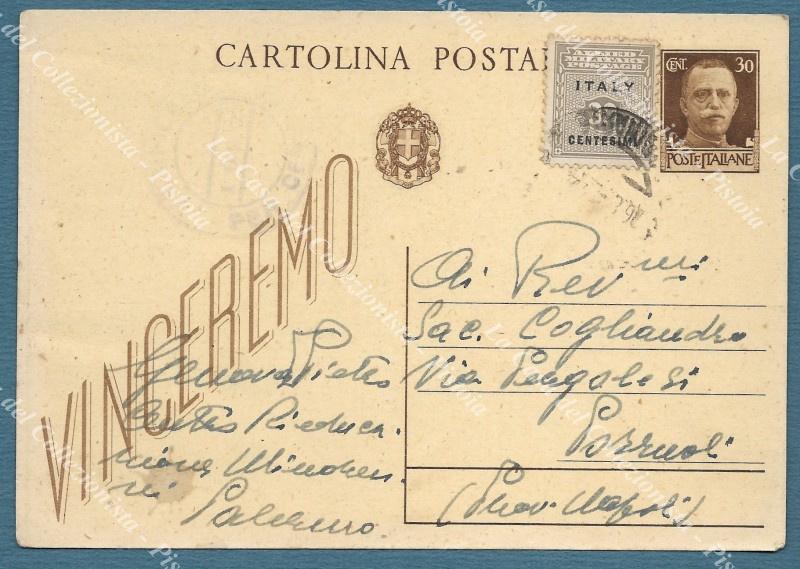 CARTOLINA POSTA
ALLIED
MILITARY
POSTAGE
ITALY
CENTESIMI
CENT. 30
POSTE ITALIANE
VINCEREMO
Ai Rev mi
Sac. Cogliandro
Via Pergolesi
Pozzuoli
(Prov. Napoli)
Genova Pietro
Centro Rieduca-
zione Minoren-
ni
Palermo
La Casa del Collezionista - Pistoia